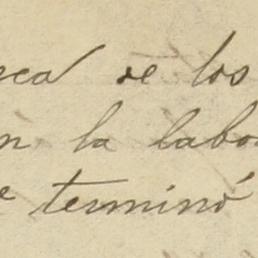 eca de los
n la labo
e terminó